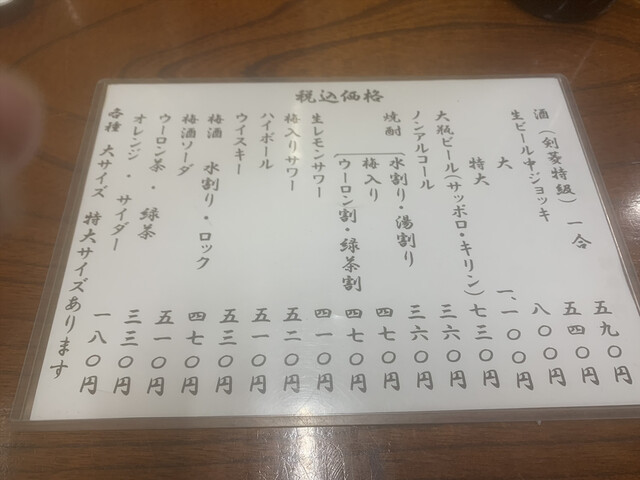 税込価格
酒（剣菱特級） 一合 五九〇円
生ビール中ジョッキ 五四〇円
大 八〇〇円
特大 一、一〇〇円
大瓶ビール（サッポロ・キリン） 七三〇円
ノンアルコール 三六〇円
焼酎 水割り・湯割り 三六〇円
梅入り 四七〇円
ウーロン割・緑茶割 四七〇円
生レモンサワー 四一〇円
梅入りサワー 五二〇円
ハイボール 五一〇円
ウイスキー 五三〇円
梅酒 水割り・ロック 四七〇円
梅酒ソーダ 五一〇円
ウーロン茶・緑茶 三三〇円
オレンジ・サイダー 一八〇円
各種 大サイズ 特大サイズあります